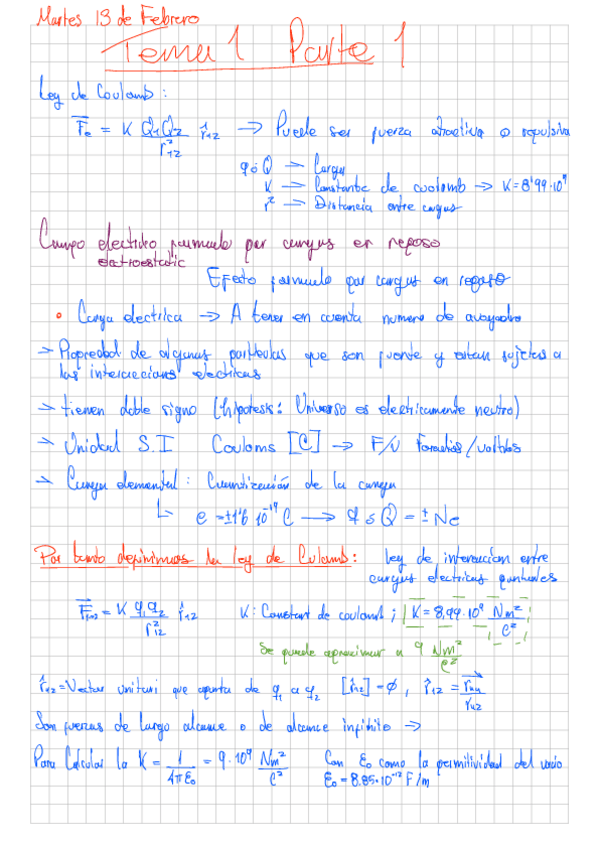 Martes 13 de Febrero
Tema 1 Parte 1
Ley de Coulomb:
F⃗e = K Q1Q2/r²12 r̂12 → Puede ser fuerza atractiva o repulsiva
q ó Q → Carga
K → Constante de coolomb → K = 8'99·10⁹
r² → Distancia entre cargas
Campo electrico formado por cargas en reposo
electroestatic
Efecto formado por cargas en reposo
• Carga electrica → A tener en cuenta numero de avogadro
→ Propiedad de algunas particulas que son fuente y estan sujetas a
las interacciones electricas
→ tienen doble signo (hipotesis: Universo es electricamente neutro)
→ Unidad S.I Couloms [C] → F/V Faradios/voltios
→ Carga elemental: Cuantización de la carga
↳ e = ±1'6 10⁻¹⁹ C → q ó Q = ± Ne
Por tanto definimos la ley de Culomb: ley de interaccion entre
cargas electricas puntuales
F⃗1→2 = K q1 q2/r²12 r̂12 K: Constant de coulomb; K = 8,99·10⁹ Nm²/C²
Se puede aproximar a 9 Nm²/C²
r̂12 = Vector unitari que apunta de q1 a q2 [r̂12] = ∅, r̂12 =
Son fuerzas de largo alcance o de alcance infinito →
Para Calcular la K = 1/4πε0 = 9·10⁹ Nm²/C² Con ε0 como la permitividad del vacio
ε0 = 8.85·10⁻¹² F/m